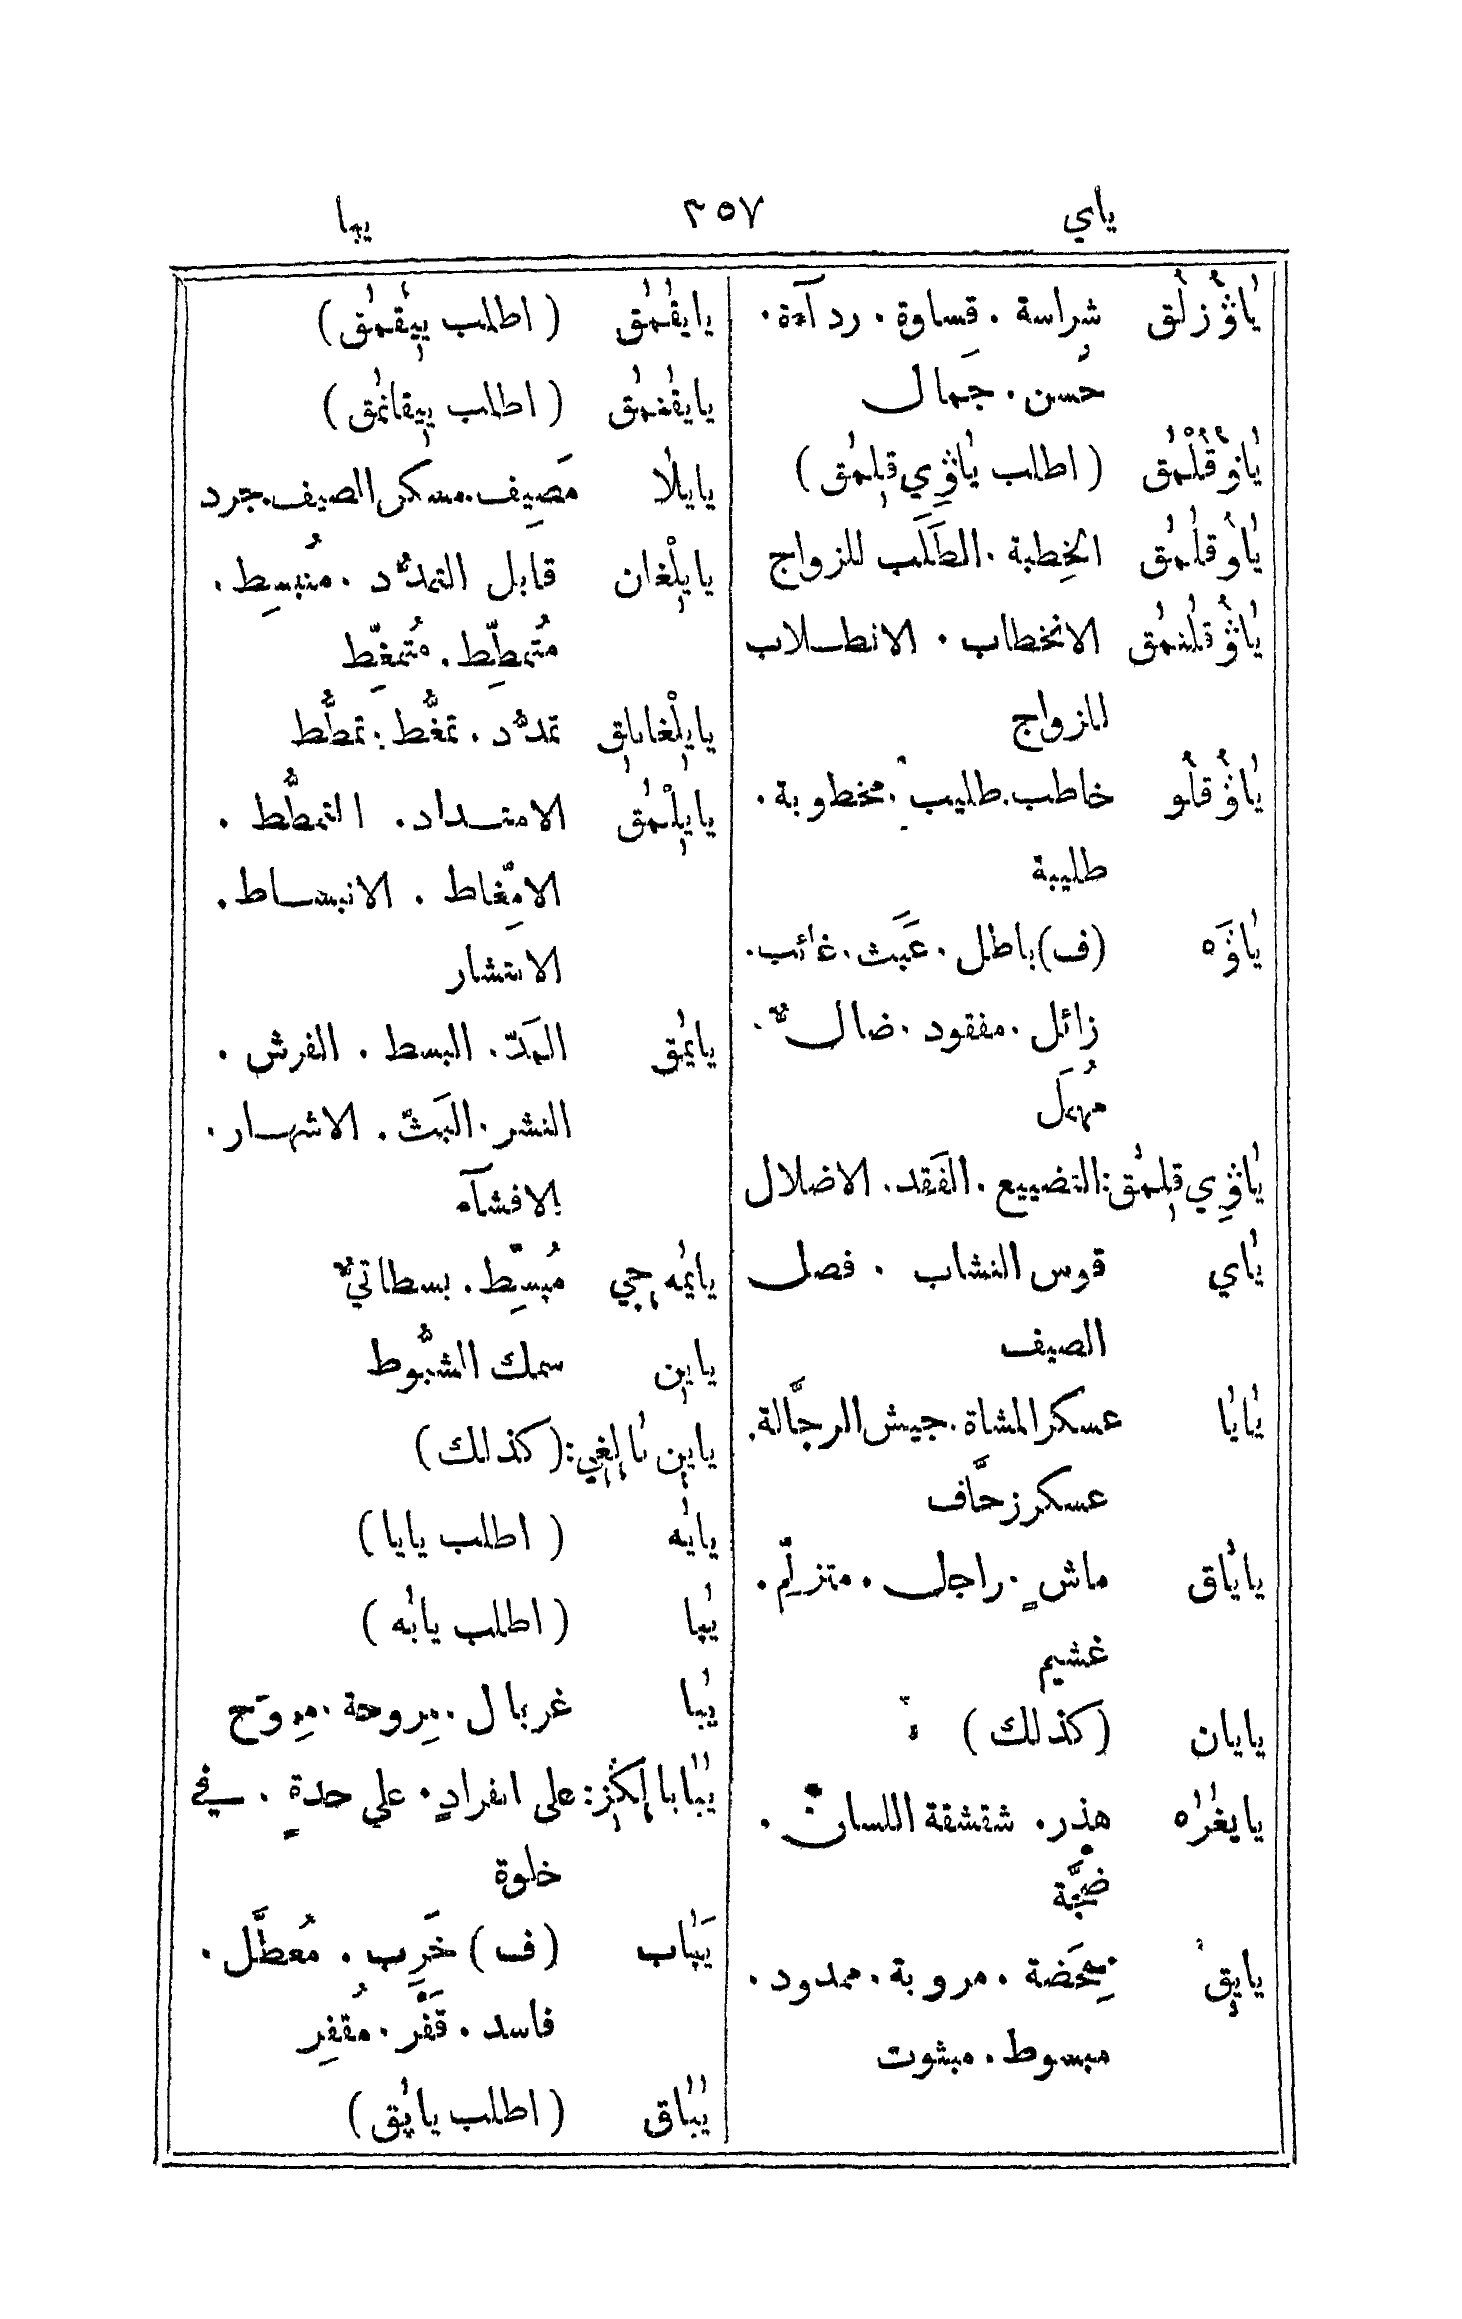 ياي ٣٥٧ يبا
يٰاؤُزلُق شراسة . قساوة . ردآءة .
حُسن . جَمال
يٰاؤُقْلٰمٰق ( اطلب يٰاؤِي قِلمٰق )
يٰاوُقلٰمٰق الخِطبة . الطَلَب للزواج
يٰاؤُقلٰنمٰق الانخطاب . الانطلاب
للزواج
يٰاؤُقلُو خاطب . طليب . مخطوبة .
طليبة
يٰاوَه (ف) باطل . عَبَث . غائب .
زائل . مفقود . ضالٌّ .
مُهمَل
يٰاوِي قِلمٰق : التضييع . الفَقد . الاضلال
يٰاي قوس النشاب . فصل
الصيف
يٰايٰا عسكر المشاة . جيش الرجَّالة .
عسكر زحَّاف
يايٰاق ماشٍ . راجل . متزلّم .
غشيم
يايان (كذلك)
يايغٰرٰه هذر . شقشقة اللسان .
ضجَّة
يايِق مِمخَضة . مروبة . ممدود .
مبسوط . مبثوث
يايقٰمٰق ( اطلب ييِقٰمٰق )
يايقٰنمٰق ( اطلب ييِقانمٰق )
يايلٰا مَصِيف . مسكن الصيف . جرد
يايِلْغان قابل التمدُّد . مُنبسِط .
مُتمطِّط . مُتمغِّط
يايِلْغاناق تمدُّد . تمغُّط . تمطُّط
يايِلْمٰق الامتداد . التمطُّط .
الامِّغاط . الانبساط .
الانتشار
يايمٰق المَدّ . البسط . الفرش .
النشر . البَثّ . الاشهار .
الافشآء
يايمٰه جِي مُبسِّط . بسطاتيٌّ
يايِن سمك الشبُّوط
يايِن بٰالِغِي : (كذلك)
يايٰه ( اطلب يايا )
يٰپا ( اطلب يابٰه )
يٰبا غربال . مِروحة . مِروَح
يٰبٰابا لِكِز : على انفرادٍ . على حدةٍ . في
خلوة
يَبٰاب (ف) خَرِب . مُعطَّل .
فاسد . قَفَر . مُقفِر
يٰبٰاق ( اطلب ياپٰق )